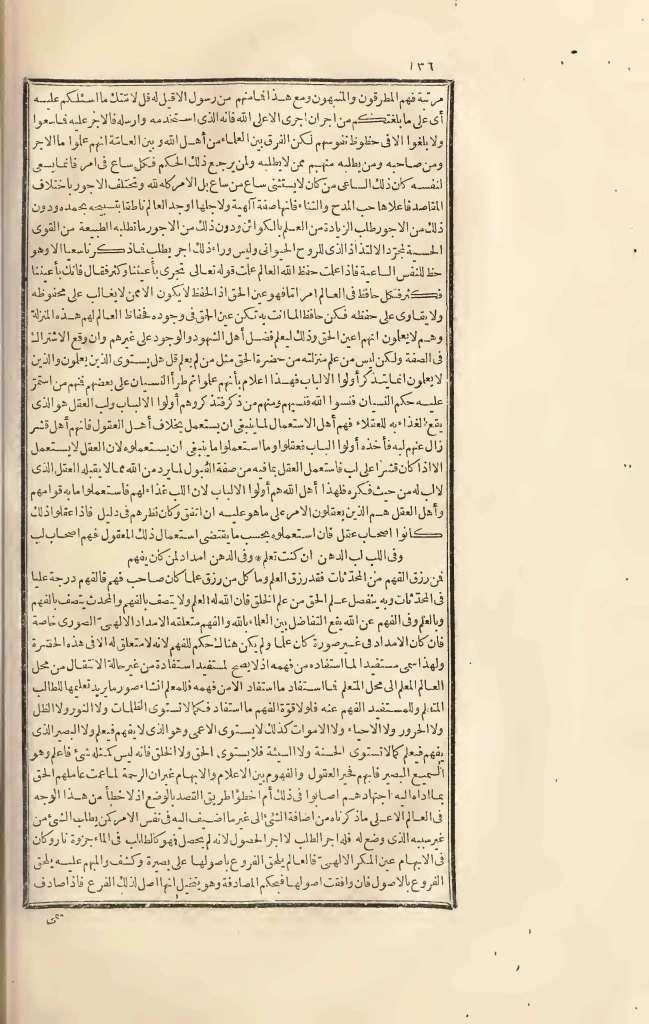 ١٣٦
مرتبة فهم المطرقون والمنبهون ومع هذا فما منهم من رسول الا قيل له قل لامتك ما أسئلكم عليه
أى على ما بلغتكم من اجر ان اجرى الا على الله فانه الذى استخدمه وارسله فالاجر عليه فما سعوا
ولا بلغوا الا فى حظوظ نفوسهم لكن الفرق بين العلماء من أهل الله وبين العامّة انهم علموا ما الاجر
ومن صاحبه ومن يطلبه منهم ممن لا يطلبه ولمن يرجع ذلك الحكم فكل ساع فى امر فانما يسعى
لنفسه كان ذلك الساعى من كان لا يستثنى ساع من ساع بل الامر كله لله وتختلف الاجور باختلاف
المقاصد فاعلاها حب المدح والثناء فانها صفة آلهية ولاجلها اوجد العالم ناطقا بتسبيحه بحمده ودون
ذلك من الاجور طلب الزيادة من العلم بالكوائن ودون ذلك من الاجور ما تطلبه الطبيعة من القوى
الحسية لمجرّد الالتذاذ الذى للروح الحيوانى وليس وراء ذلك اجر يطلب فما ذكرنا سعيا الا وهو
حظ للنفس الساعية فاذا علمت حفظ الله العالم علمت قوله تعالى تجرى بأعيننا وكثر فقال فانك بأعيننا
فكثر فكل حافظ فى العالم امرا تما فهو عين الحق اذ الحفظ لا يكون الا ممن لا يغالب على محفوظه
ولا يقاوى على حفظه فكن حافظا لما انت به تكن عين الحق فى وجوده فحفاظ العالم لهم هذه المنزلة
وهم لا يعلمون انهم اعين الحق وذلك ليعلم فضل أهل الشهود والوجود على غيرهم وان وقع الاشتراك
فى الصفة ولكن ليس من علم منزلته من حضرة الحق مثل من لم يعلم قل هل يستوى الذين يعلمون والذين
لا يعلمون انما يتذكر أولوا الالباب فهذا اعلام بأنهم علموا ثم طرأ النسيان على بعضهم فمنهم من استمرّ
عليه حكم النسيان فنسوا الله فنسيهم ومنهم من ذكر فتذكر وهم أولوا الالباب ولب العقل هو الذى
يقع الغذاء به للعقلاء فهم أهل الاستعمال لما ينبغى ان يستعمل بخلاف أهل العقول فانهم أهل قشر
زال عنهم لبه فأخذه أولوا الباب فعقلوا وما استعملوا ما ينبغى ان يستعملوه لان العقل لا يستعمل
الا اذا كان قشرا على لب فاستعمل العقل بما فيه من صفة القبول لما يرد من الله مما لا يقبله العقل الذى
لا لب له من حيث فكره فلهذا أهل الله هم أولوا الالباب لان اللب غذاء لهم فاستعملوا ما به قوامهم
وأهل العقل هم الذين يعقلون الامر على ما هو عليه ان اتفق وكان نظرهم فى دليل فاذا عقلوا ذلك
كانوا اصحاب عقل فان استعملوه بحسب ما يقتضى استعمال ذلك المعقول فهم اصحاب لب
وفى اللب لب الدهن ان كنت تعلم * وفى الدهن امداد لمن كان يفهم
فمن رزق الفهم من المحدثات فقد رزق العلم وما كل من رزق علما كان صاحب فهم فالفهم درجة عليا
فى المحدثات وبه ينفصل علم الحق من علم الخلق فان الله له العلم ولا يتصف بالفهم والمحدث يتصف بالفهم
وبالعلم وفى الفهم عن الله يقع التفاضل بين العلماء بالله والفهم متعلقه الامداد الالهىّ الصورى خاصة
فان كان الامداد فى غير صورة كان علما ولم يكن هنالك حكم للفهم لانه لا متعلق له الا فى هذه الحضرة
ولهذا سمى مستفيدا لما استفاده من فهمه اذ لا يصح لمستفيد استفادة من غير حالة الانتقال من محل
العالم المعلم الى محل المتعلم فما استفاد ما استفاد الا من فهمه فللمعلم انشاء صور ما يريد تعليمها للطالب
المتعلم وللمستفيد الفهم عنه فلولا قوة الفهم ما استفاد فكما لا تستوى الظلمات ولا النور ولا الظل
ولا الحرور ولا الاحياء ولا الاموات كذلك لا يستوى الاعمى وهو الذى لا يفهم فيعلم ولا البصير الذى
يفهم فيعلم كما لا تستوى الحسنة ولا السيئة فلا يستوى الحق ولا الخلق فانه ليس كمثله شئ فاعلم وهو
السميع البصير فابهم فحير العقول والفهوم بين الاعلام والابهام غير ان الرحمة لما عمت عاملهم الحق
بما اداه اليه اجتهادهم اصابوا فى ذلك أم اخطؤا طريق القصد بالوضع اذ لا خطأ من هذا الوجه
فى العالم الا على ما ذكرناه من اضافة الشئ الى غير ما اضيف اليه فى نفس الامر كمن يطلب الشئ من
غير سببه الذى وضع له فله اجر الطلب لا اجر الحصول لانه لم يحصل فهو كالطالب فى الماء جزوة نار وكان
فى الابهام عين المكر الالهىّ فالعالم يلحق الفروع باصولها على بصيرة وكشف والمبهم عليه يلحق
الفروع بالاصول فان وافقت اصولها فبحكم المصادفة وهو يتخيل انها اصل لذلك الفرع فاذا صادف